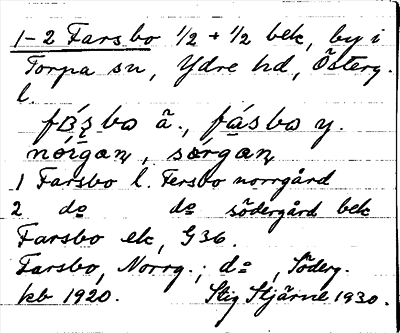 1-2 Farsbo 1/2 + 1/2 bek, by i
Torpa sn, Ydre hd, Österg.
l.
fá̱sbo y.
nórgaɳ, sørgaɳ
1 Farsbo l. Fersbo norrgård
2 do do södergård bek
Farsbo ek, G36.
Farsbo, Norrg.; do, Söderg.
kb 1920. Stig Stjärne 1930.